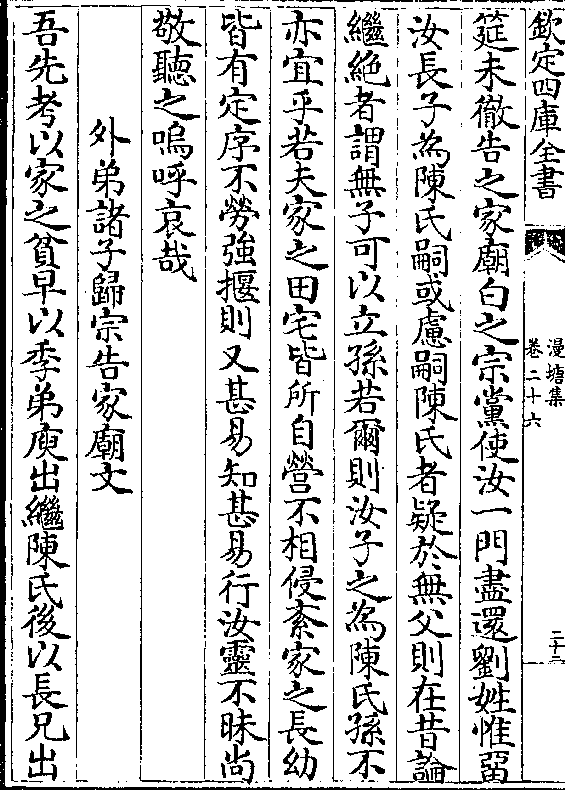 欽定四庫全書
漫塘集
卷二十六
二十二
筵未徹告之家廟白之宗黨使汝一門盡還劉姓惟留
汝長子為陳氏嗣或慮嗣陳氏者疑於無父則在昔論
繼絶者謂無子可以立孫若爾則汝子之為陳氏孫不
亦宜乎若夫家之田宅皆所自營不相侵紊家之長幼
皆有定序不勞強揠則又甚易知甚易行汝靈不昧尚
敬聽之嗚呼哀哉
外弟諸子歸宗告家廟文
吾先考以家之貧早以季弟庾出繼陳氏後以長兄出